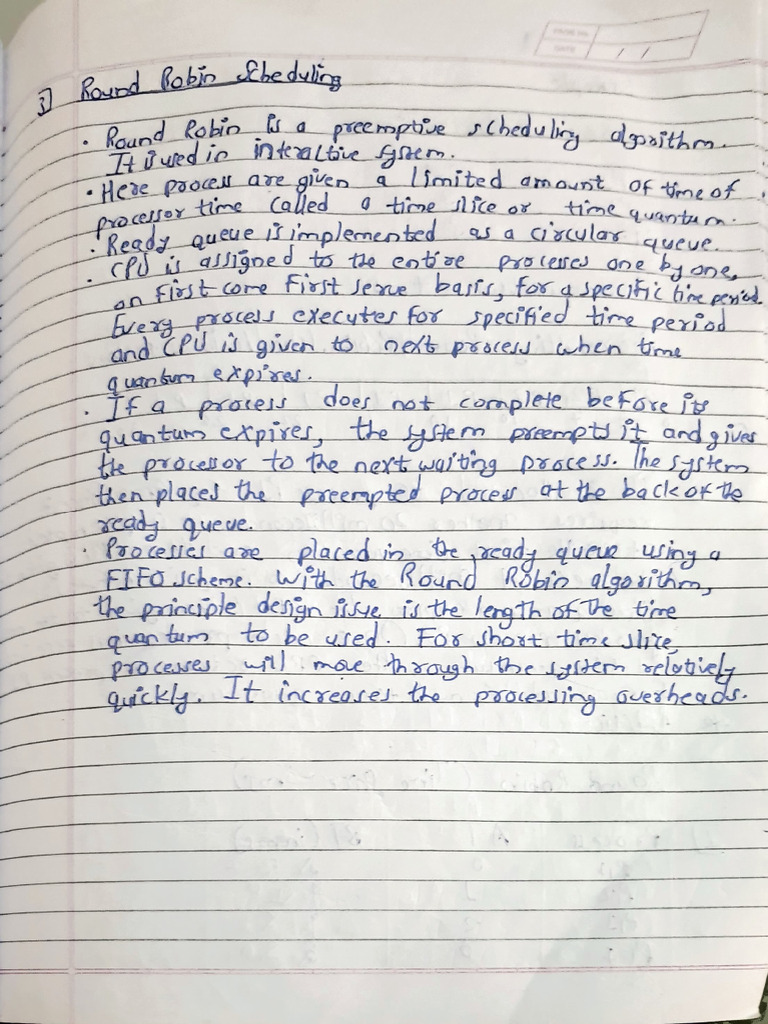 PAGE NO.
DATE / /
3] Round Robin Scheduling
• Round Robin is a preemptive scheduling algorithm.
It is used in interactive system.
• Here process are given a limited amount of time of
processor time called a time slice or time quantum.
• Ready queue is implemented as a circular queue.
• CPU is assigned to the entire processes one by one,
on first come first serve basis, for a specific time period.
Every process executes for specified time period
and CPU is given to next process when time
quantum expires.
• If a process does not complete before its
quantum expires, the system preempts it and gives
the processor to the next waiting process. The system
then places the preempted process at the back of the
ready queue.
• Processes are placed in the ready queue using a
FIFO scheme. With the Round Robin algorithm,
the principle design issue is the length of the time
quantum to be used. For short time slice,
processes will move through the system relatively
quickly. It increases the processing overheads.